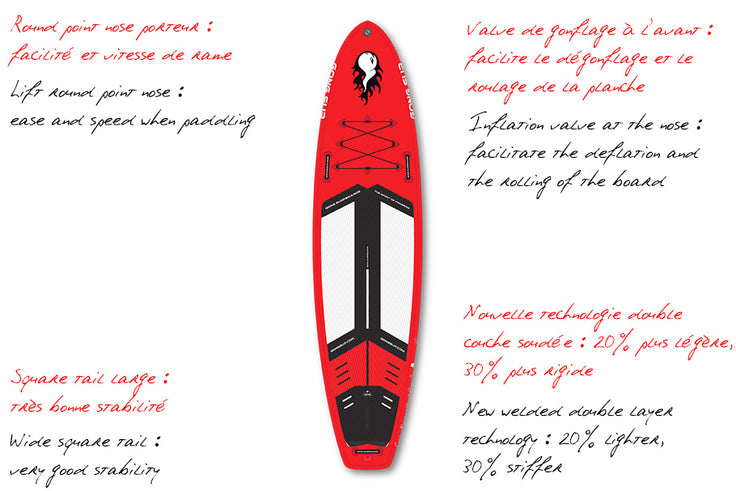 Round point nose porteur :
facilité et vitesse de rame
Lift round point nose :
ease and speed when paddling
Valve de gonflage à l'avant :
facilite le dégonflage et le
roulage de la planche
Inflation valve at the nose :
facilitate the deflation and
the rolling of the board
Square tail large :
très bonne stabilité
Wide square tail :
very good stability
Nouvelle technologie double
couche soudée : 20% plus légère,
30% plus rigide
New welded double layer
technology : 20% lighter,
30% stiffer